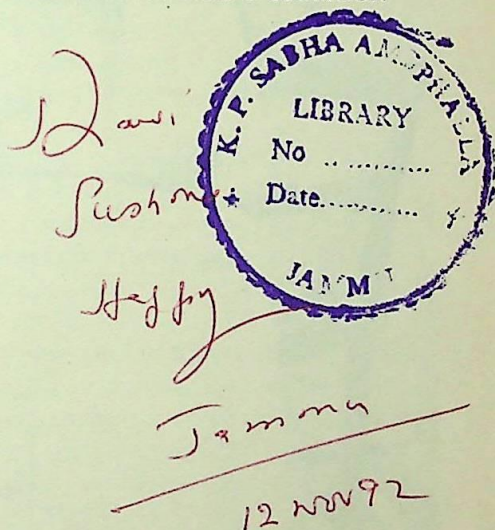 K. P. SABHA AMBPHALLA
LIBRARY
No ............
Date............
JAMMU
Ravi
Sushma
Happy
Jammu
12 NOV 92